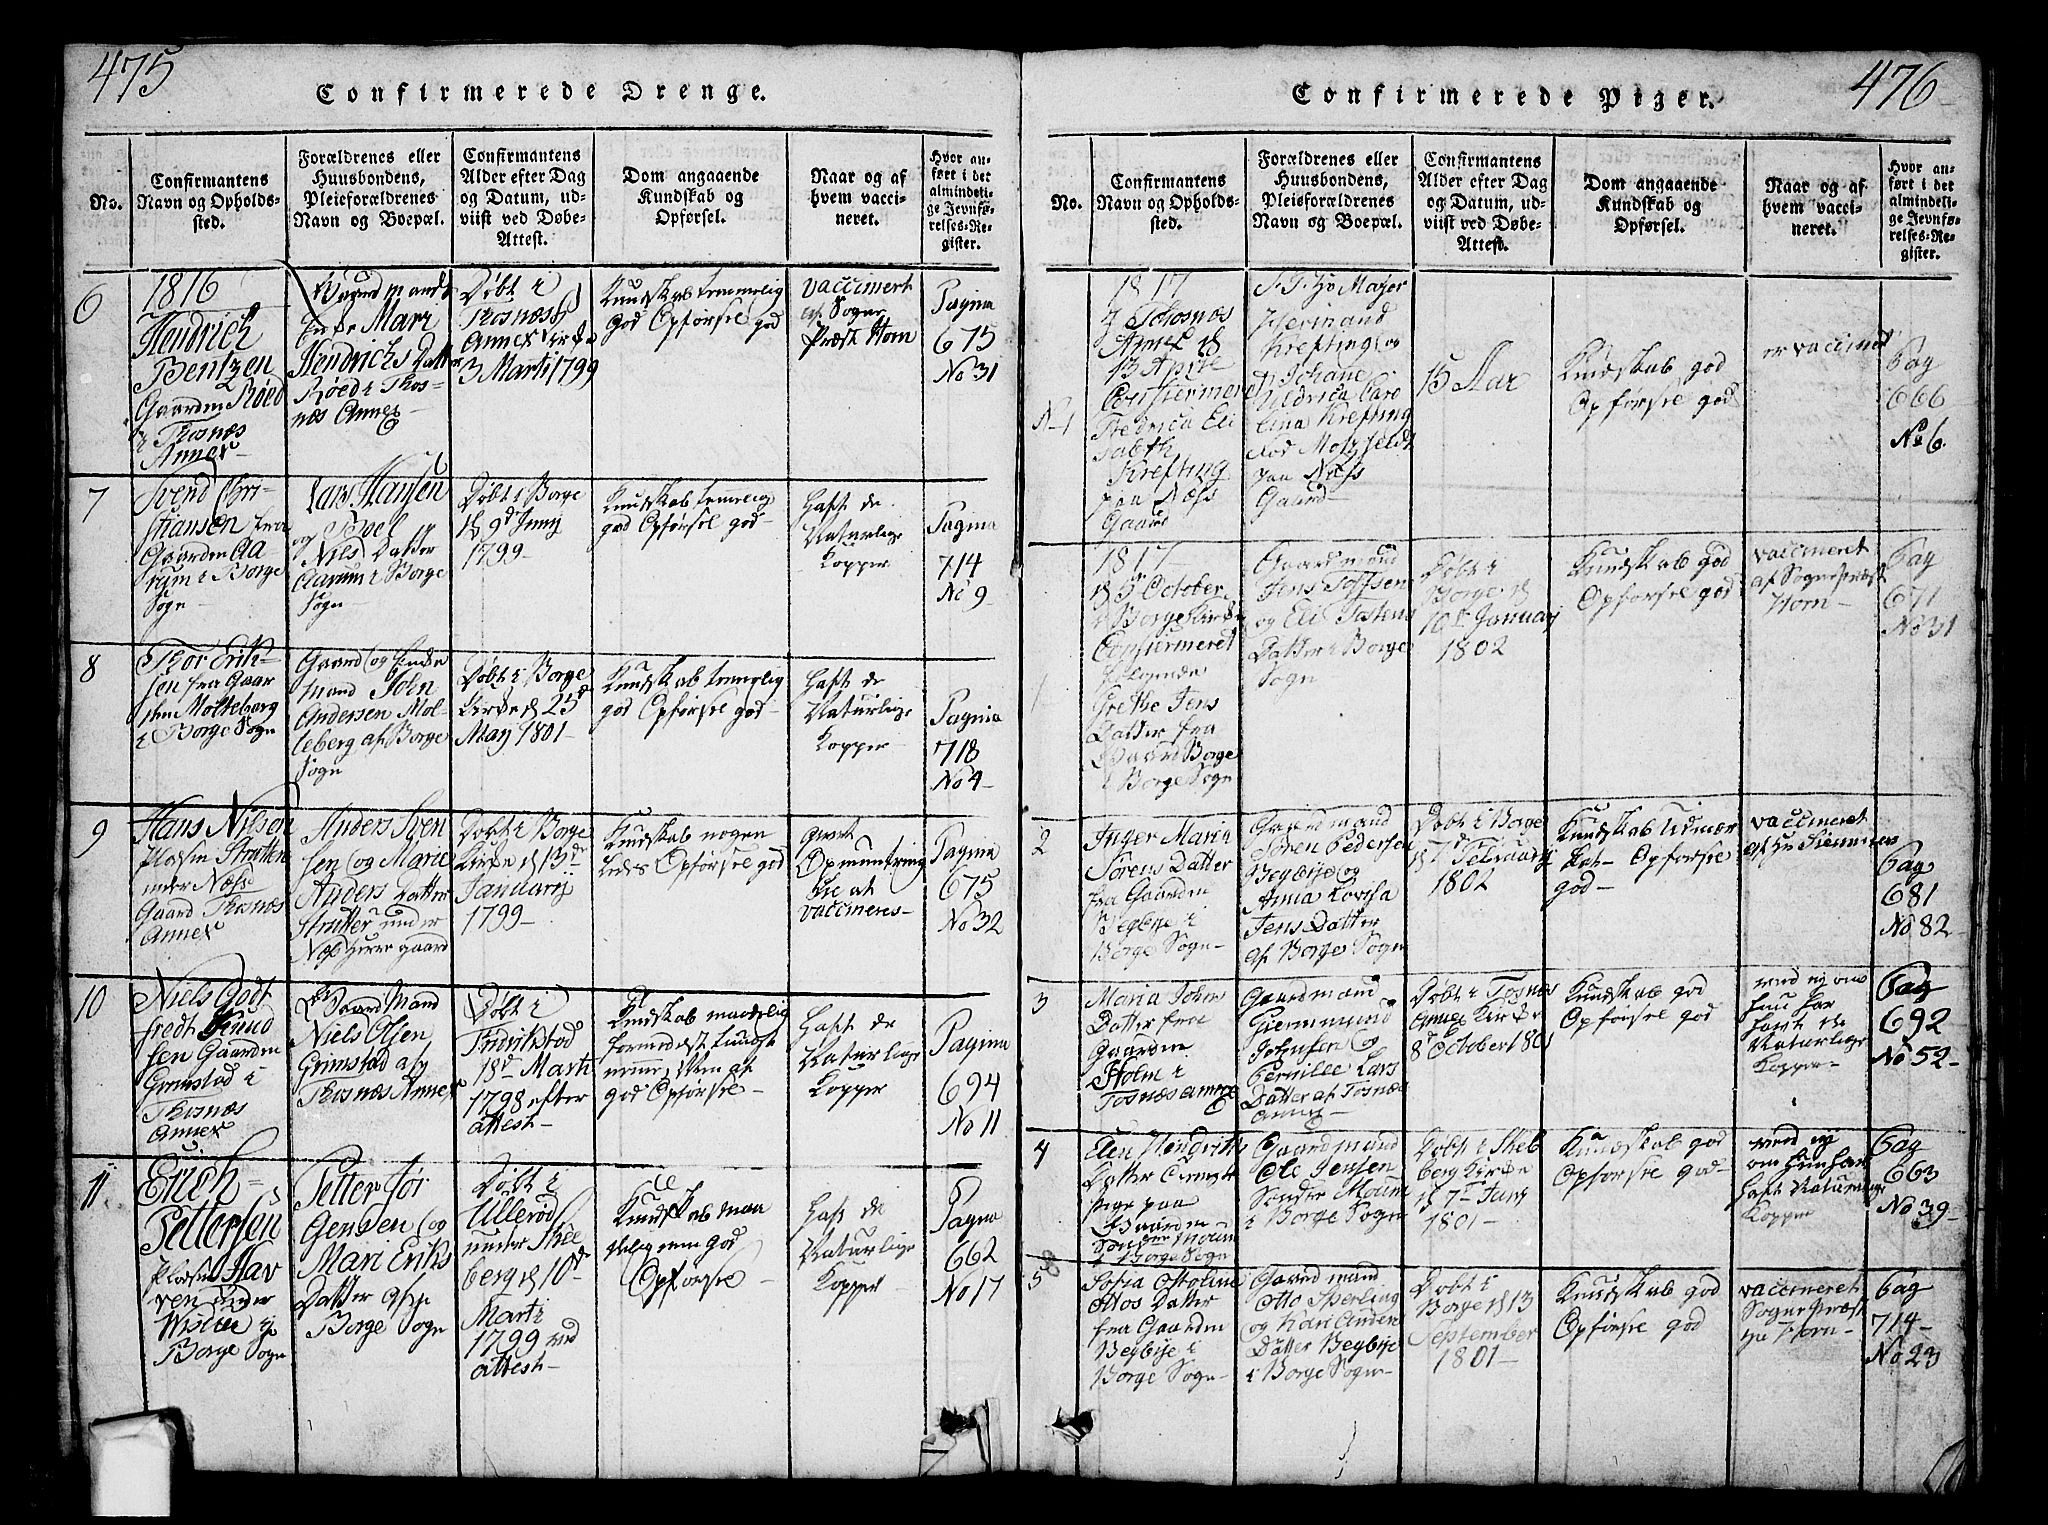 475
Confirmerede Drenge.
No.
Confirmantens
Navn og Opholds-
sted.
Forældrenes eller
Huusbondens,
Pleieforældrenes
Navn og Boepæl.
Confirmantens
Alder efter Dag
og Datum, ud-
viist ved Døbe-
Attest.
Dom angaaende
Kundskab og
Opførsel.
Naar og af
hvem vacci-
neret.
Hvor an-
ført i det
almindeli-
ge Jevnfø-
relses-Re-
gister.
6
1816
Hendrich
Bentzen
Gaarden Røed
i Thosnæs
Annex
Gaard mand
Mari
Hendrichs Datter
Røed i Thos-
næs Annex
Døbt i
Thosnæs
Annex Kirke
3 Marti 1799
Kundskab temmelig
god Opførsel god
vaccinert
af Sogne
Præst Horn
Pagina
675
No 31
7
Svend Chri-
stiansen fra
Gaarden Aa
rum i Borge
Sogn
Lars Hansen
og Boel
Niels Datter
Aarum i Borge
Sogn
Døbt i Borge
d 9d Juny
1799
Kundskab temelig
god Opførsel god
Haft de
Naturlige
Kopper
Pagina
714
No 9
8
Thor Erik-
sen fra Gaar
den Molteberg
i Borge Sogn
Gaard og
mand John
Andersen Mol-
teberg af Borge
Sogn
Døbt i Borge
Kirke d 25d
May 1801
Kundskab temelig
god Opførsel god
Haft de
Naturlige
Kopper
Pagina
718
No 4
9
Hans Nilsen
Pladsen Stratten
under Næss
Gaard Thosnæs
Annex
Anders Sven
sen og Marie
Anders Datter
Stratten under
Næs Herregaard
Døbt i Borge
Kirke d 13de
Januarij
1799
Kundskab nogen
ledes Opførsel god
Opmuntring
til at
vaccineres
Pagina
675
No 32
10
Niels Godt
fredt Knud
sen Gaarden
Grimstad i
Thosnæs
Annex
Gaard Mand
Niels Olsen
Grimstad af
Thosnæs Annex
Døbt i
Fridrikstad
18d Marti
1798 efter
attest
Kundskab maadelig
god Opførsel
Haft de
Naturlige
Kopper
Pagina
694
No 11
11
Erich
Pettersen
Pladsen Hav
ven under
Borge Sogn
Petter Jør
gensen og
Mari Eriks
Datter af
Borge Sogn
Døbt i
Ullerød
under Skee
berg d 10de
Marti
1799 ved
attest
Kundskab maa
delig men god
Opførsel
Haft de
Naturlige
Kopper
Pagina
662
No 17
476
Confirmerede Piger.
No.
Confirmantens
Navn og Opholds-
sted.
Forældrenes eller
Huusbondens,
Pleieforældrenes
Navn og Boepæl.
Confirmantens
Alder efter Dag
og Datum, ud-
viist ved Døbe-
Attest.
Dom angaaende
Kundskab og
Opførsel.
Naar og af
hvem vacci-
neret.
Hvor an-
ført i det
almindeli-
ge Jevnfø-
relses-Re-
gister.
N 1
1817
I Thosnæs
Annex d
13 Aprill
Confirmeret
Fredrica Eli
sabeth
Krefting
paa Næss
Gaard
Major
Hermand
Krefting og
Johane
Uldrica Caro
lina Krefting
fød Motzfeldt
paa Næss
Gaard
15 Aar
Kundskab god
Opførsel god
er vaccined
Pag
666
No 6
1
1817
d 5 October
i Borge Kirke
Confirmeret
følgende
Grethe Jens
Datter fra
Gaard Borge
i Borge Sogn
Gaardmand
Jens Toftsen
og Eli Tostens
Datter i Borge
Sogn
Døbt i
Borge d
10d January
1802
Kundskab god
Opførsel god
vaccineret
af Sognepræst
Horn
Pag
671
No 31
2
Inger Maria
Sørens Datter
fra Gaarden
Begbye i
Borge Sogn
Gaardmand
Søren Pedersen
Begbye og
Anna Lovisa
Jens Datter
af Borge Sogn
Døbt i Borge
d 7d February
1802
Kundskab
Opførsel
god
vaccineret
Pag
681
No 82
3
Maria Johns
Datter fra
Gaarden
Holm i
Tosnæs annex
Gaardmand
Giermund
Johnsen og
Pernille Lars
Datter af Tosnæs
annex
Døbt i Tosnæs
Annex Kirke
8d October 1801
Kundskab god
Opførsel god
veed ej om
hun har
haft de
Naturlige
Kopper
Pag
692
No 52
4
Elen Hendriks
Datter Tieneste
pige paa
Gaarden
Sønder Moum
i Borge Sogn
Gaardmand
Ole Jensen
Sønder Moum
i Borge Sogn
Døbt i Skee
berg Kirke
d 7d Juny
1801
Kundskab god
Opførsel god
veed ej
om hun har
haft Naturlige
Kopper
Pag
663
No 39
5
8
Sofia Otteline
Ottos Datter
fra Gaarden
Begbye i
Borge Sogn
Gaard mand
Otto Sperling
og Kari Anders
Datter Begbye
i Borge Sogn
Døbt i
Borge d 13
September
1801
Kundskab god
Opførsel god
vaccineret
Sogne Præst
Hr Horn
Pag
714
No 23